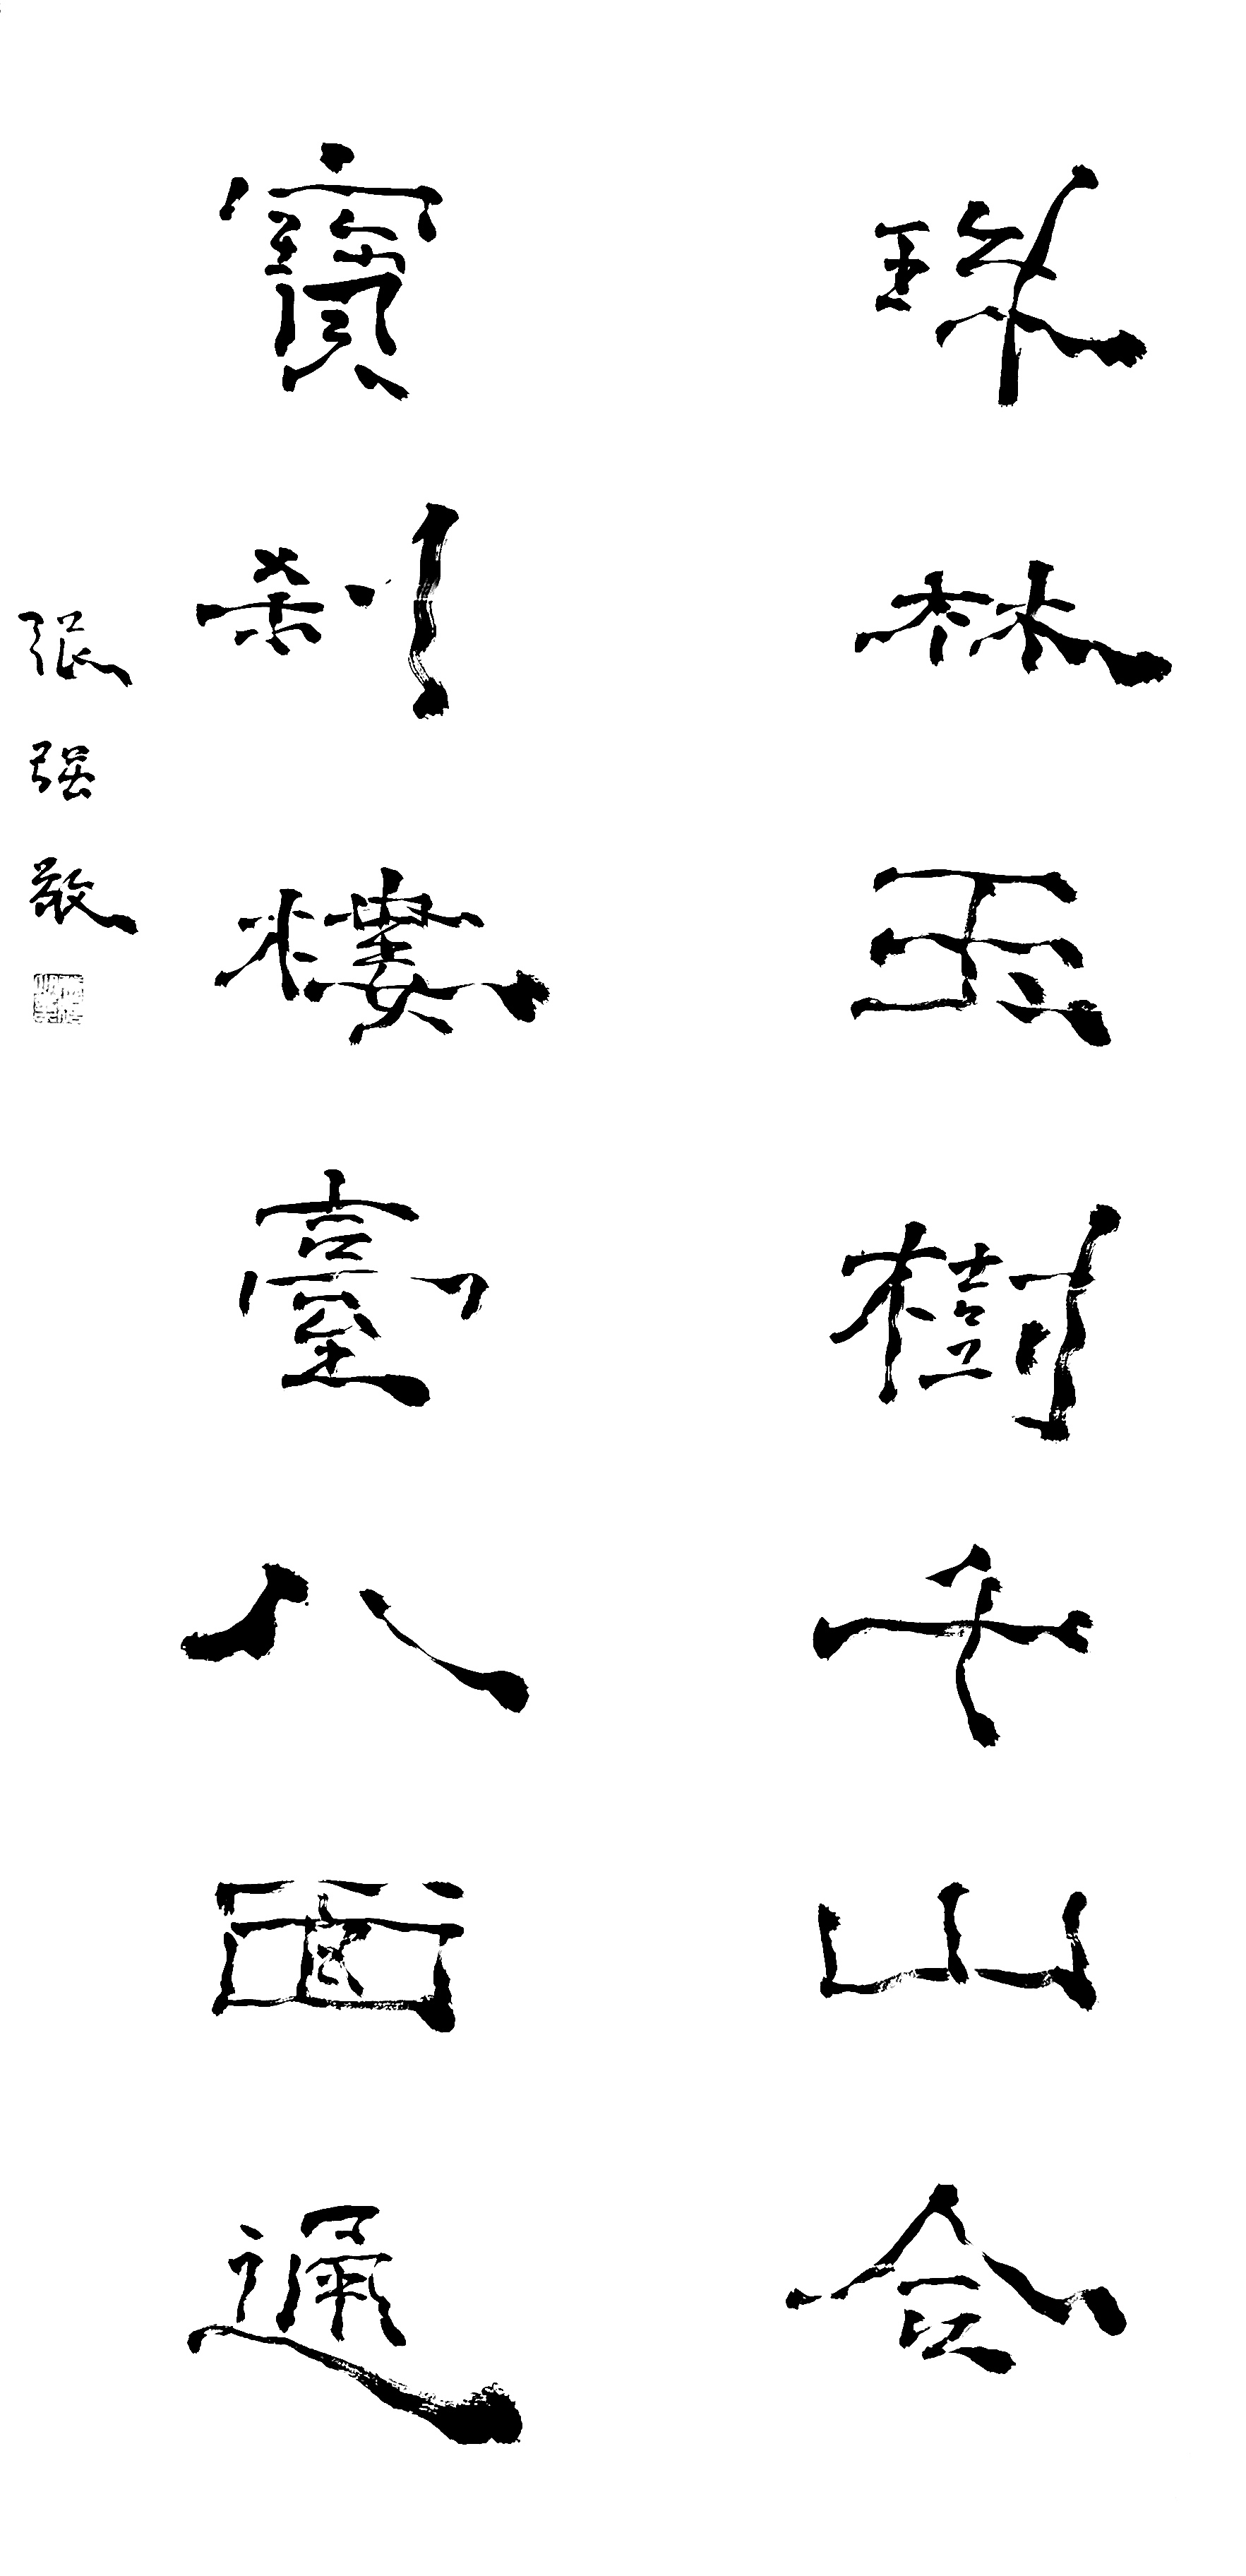 珠林玉樹千山合
寶刹樓臺八面通
張強敬